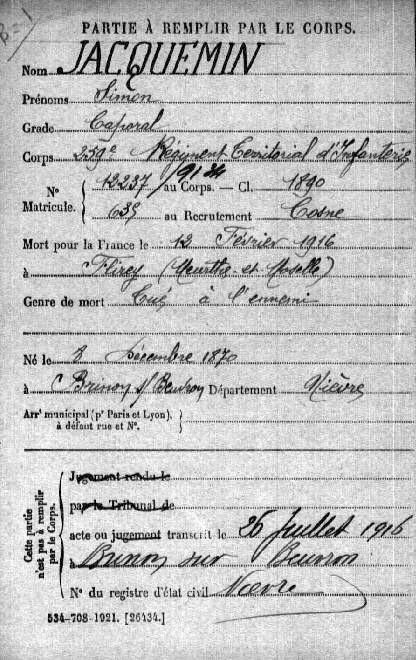 PARTIE À REMPLIR PAR LE CORPS.
Nom JACQUEMIN
Prénoms Simon
Grade Caporal
Corps 259e Régiment Territorial d'Infanterie
N° Matricule. 12237 / 9124 au Corps. — Cl. 1890
635 au Recrutement Cosne
Mort pour la France le 12 Février 1916
à Flirey (Meurthe-et-Moselle)
Genre de mort Tué à l'ennemi
Né le 8 Décembre 1870
à Brinon s/ Beuvron Département Nièvre
Arrt municipal (pr Paris et Lyon), à défaut rue et N°.
Cette partie n'est pas à remplir par le Corps.
Jugement rendu le
par le Tribunal de
acte ou jugement transcrit le 25 Juillet 1916
à Brinon sur Beuvron
N° du registre d'état civil Nièvre
534-708-1921. [26434.]